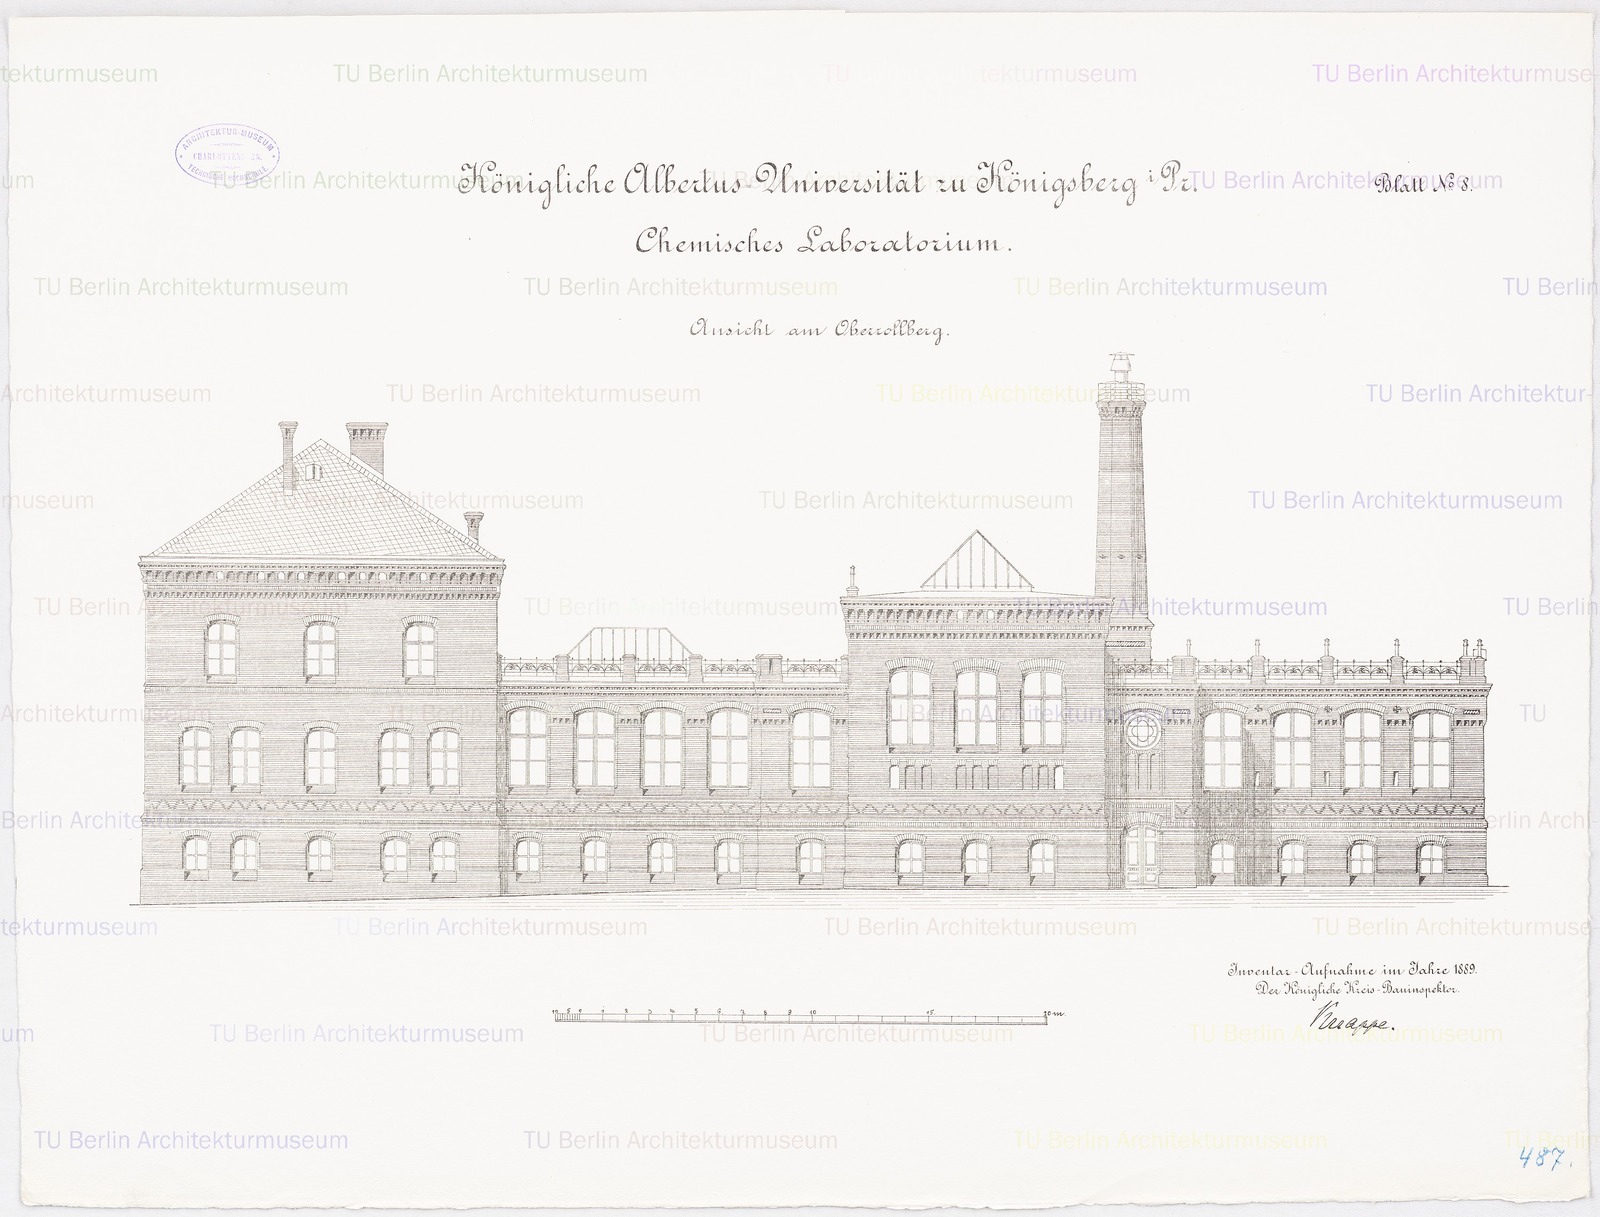 ARCHITEKTUR-MUSEUM
TECHNISCHE HOCHSCHULE
Königliche Albertus-Universität zu Königsberg i. Pr.
Blatt No 8.
Chemisches Laboratorium.
Ansicht am Oberrollberg.
10 5 0 1 2 3 4 5 6 7 8 9 10 15 20 m.
Inventar-Aufnahme im Jahre 1889.
Der Königliche Kreis-Bauinspektor.
Knappe.
487.
TU Berlin Architekturmuseum